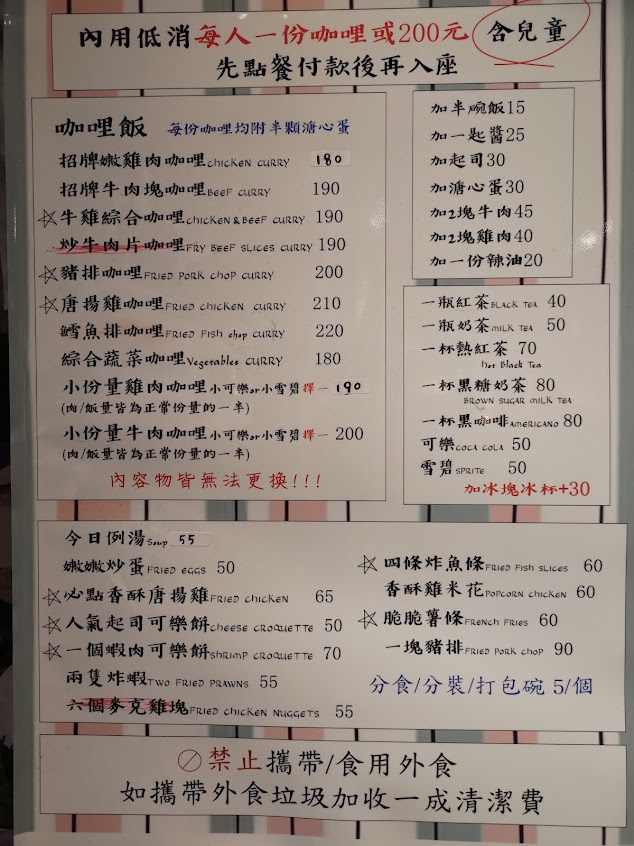 內用低消每人一份咖哩或200元 含兒童
先點餐付款後再入座
咖哩飯 每份咖哩均附半顆溏心蛋
招牌嫩雞肉咖哩CHICKEN CURRY 180
招牌牛肉塊咖哩BEEF CURRY 190
☆牛雞綜合咖哩CHICKEN&BEEF CURRY 190
炒牛肉片咖哩FRY BEEF SLICES CURRY 190
☆豬排咖哩FRIED PORK CHOP CURRY 200
☆唐揚雞咖哩FRIED CHICKEN CURRY 210
鱈魚排咖哩FRIED FISH chop CURRY 220
綜合蔬菜咖哩Vegetables CURRY 180
小份量雞肉咖哩小可樂or小雪碧擇一 190
(肉/飯量皆為正常份量的一半)
小份量牛肉咖哩小可樂or小雪碧擇一 200
(肉/飯量皆為正常份量的一半)
內容物皆無法更換!!!
加半碗飯15
加一匙醬25
加起司30
加溏心蛋30
加2塊牛肉45
加2塊雞肉40
加一份辣油20
一瓶紅茶BLACK TEA 40
一瓶奶茶MILK TEA 50
一杯熱紅茶 70
Hot Black Tea
一杯黑糖奶茶 80
BROWN SUGAR MILK TEA
一杯黑咖啡AMERICANO 80
可樂COCA COLA 50
雪碧SPRITE 50
加冰塊冰杯+30
今日例湯Soup 55
嫩嫩炒蛋FRIED EGGS 50
☆必點香酥唐揚雞FRIED CHICKEN 65
☆人氣起司可樂餅CHEESE CROQUETTE 50
☆一個蝦肉可樂餅SHRIMP CROQUETTE 70
兩隻炸蝦TWO FRIED PRAWNS 55
六個麥克雞塊FRIED CHICKEN NUGGETS 55
☆四條炸魚條FRIED FISH SLICES 60
香酥雞米花POPCORN CHICKEN 60
☆脆脆薯條FRENCH FRIES 60
一塊豬排FRIED PORK CHOP 90
分食/分裝/打包碗 5/個
禁止攜帶/食用外食
如攜帶外食垃圾加收一成清潔費